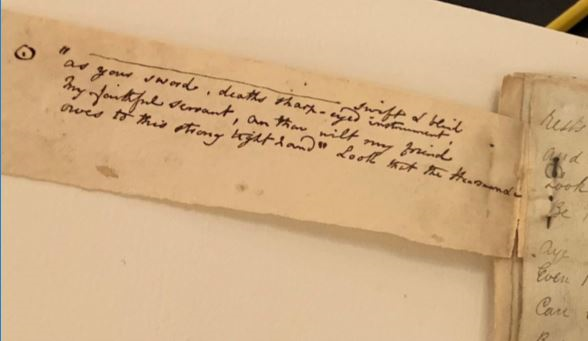 " ——— swift & blind
as your sword, deaths sharp-eyed instrument,
My faithful servant, an thou wilt my friend
owes to this strong right hand" Look that the
and
Look
Be
aye
Even
Can